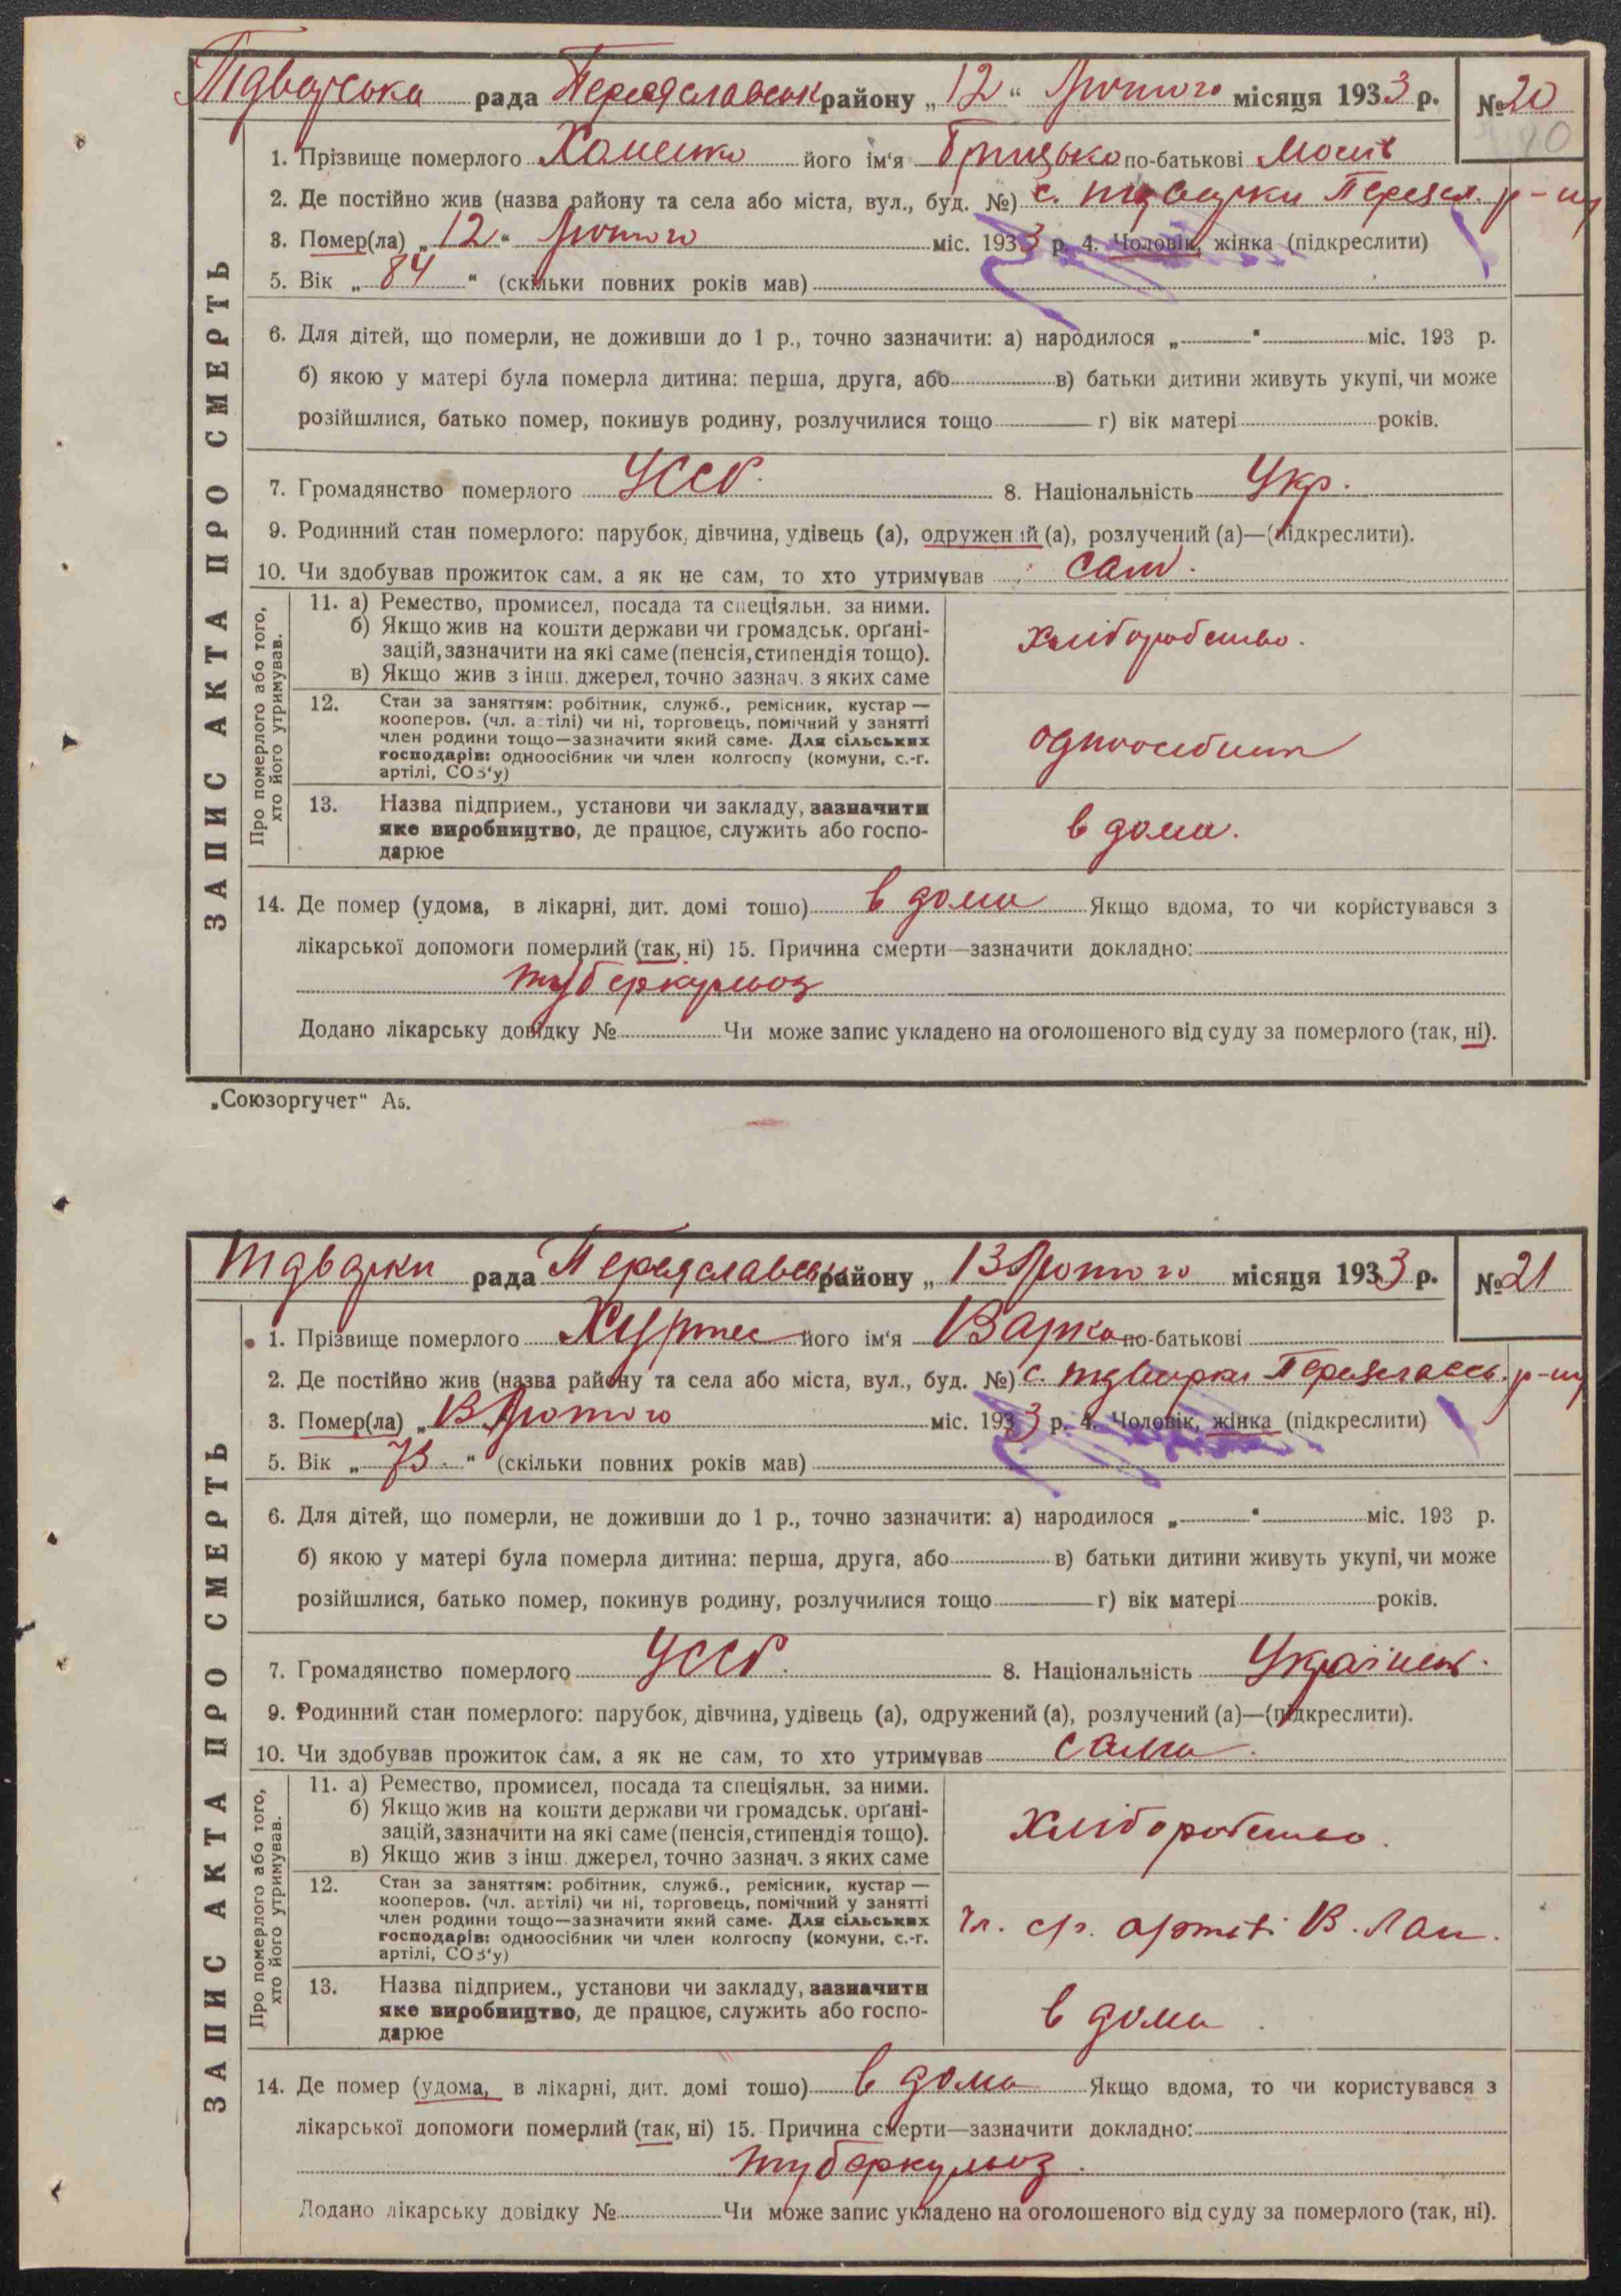 Підварська рада Переяславськ району „12“ Лютого місяця 1933 р. № 20
1. Прізвище померлого Хоменко його ім'я Грицько по-батькові Мосиів
2. Де постійно жив (назва району та села або міста, вул., буд. №) с. Підварки Переясл. р-ну
3. Помер(ла) „12“ Лютого міс. 1933 р. 4. Чоловік, жінка (підкреслити)
5. Вік „84“ (скільки повних років мав)
6. Для дітей, що померли, не доживши до 1 р., точно зазначити: а) народилося „ “ міс. 193 р.
б) якою у матері була померла дитина: перша, друга, або в) батьки дитини живуть укупі, чи може
розійшлися, батько помер, покинув родину, розлучилися тощо г) вік матері років.
7. Громадянство померлого УССР. 8. Національність Укр.
9. Родинний стан померлого: парубок, дівчина, удівець (а), одружений (а), розлучений (а)—(підкреслити).
10. Чи здобував прожиток сам, а як не сам, то хто утримував сам.
ЗАПИС АКТА ПРО СМЕРТЬ
Про померлого або того,
хто його утримував.
11. а) Ремество, промисел, посада та спеціяльн. за ними.
б) Якщо жив на кошти держави чи громадськ. орґані-
зацій, зазначити на які саме (пенсія, стипендія тощо).
в) Якщо жив з інш. джерел, точно зазнач. з яких саме
хліборобство.
12. Стан за заняттям: робітник, служб., ремісник, кустар —
кооперов. (чл. артілі) чи ні, торговець, помічний у занятті
член родини тощо—зазначити який саме. Для сільських
господарів: одноосібник чи член колгоспу (комуни, с.-г.
артілі, СОЗ'у)
одноосібник
13. Назва підприєм., установи чи закладу, зазначити
яке виробництво, де працює, служить або госпо-
дарює
в дома.
14. Де помер (удома, в лікарні, дит. домі тощо) в дома Якщо вдома, то чи користувався з
лікарської допомоги померлий (так, ні) 15. Причина смерти—зазначити докладно:
туберкульоз
Додано лікарську довідку № Чи може запис укладено на оголошеного від суду за померлого (так, ні).
„Союзоргучет“ А5.
Підварки рада Переяславськ району „13 Лютого місяця 1933 р. № 21
1. Прізвище померлого його ім'я Варка по-батькові
2. Де постійно жив (назва району та села або міста, вул., буд. №) с. Підварки Переяславсь. р-ну
3. Помер(ла) „13 Лютого міс. 1933 р. 4. Чоловік, жінка (підкреслити)
5. Вік „73“ (скільки повних років мав)
6. Для дітей, що померли, не доживши до 1 р., точно зазначити: а) народилося „ “ міс. 193 р.
б) якою у матері була померла дитина: перша, друга, або в) батьки дитини живуть укупі, чи може
розійшлися, батько помер, покинув родину, розлучилися тощо г) вік матері років.
7. Громадянство померлого УССР. 8. Національність
9. Родинний стан померлого: парубок, дівчина, удівець (а), одружений (а), розлучений (а)—(підкреслити).
10. Чи здобував прожиток сам, а як не сам, то хто утримував сама.
ЗАПИС АКТА ПРО СМЕРТЬ
Про померлого або того,
хто його утримував.
11. а) Ремество, промисел, посада та спеціяльн. за ними.
б) Якщо жив на кошти держави чи громадськ. орґані-
зацій, зазначити на які саме (пенсія, стипендія тощо).
в) Якщо жив з інш. джерел, точно зазнач. з яких саме
Хліборобство.
12. Стан за заняттям: робітник, служб., ремісник, кустар —
кооперов. (чл. артілі) чи ні, торговець, помічний у занятті
член родини тощо—зазначити який саме. Для сільських
господарів: одноосібник чи член колгоспу (комуни, с.-г.
артілі, СОЗ'у)
Чл. с/г. артілі В. Лан.
13. Назва підприєм., установи чи закладу, зазначити
яке виробництво, де працює, служить або госпо-
дарює
в дома.
14. Де помер (удома, в лікарні, дит. домі тощо) в дома Якщо вдома, то чи користувався з
лікарської допомоги померлий (так, ні) 15. Причина смерти—зазначити докладно:
туберкульоз.
Додано лікарську довідку № Чи може запис укладено на оголошеного від суду за померлого (так, ні).